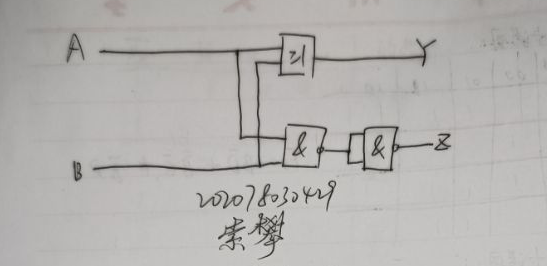 A
≥1
Y
B
&
&
Z
202078030429
索攀